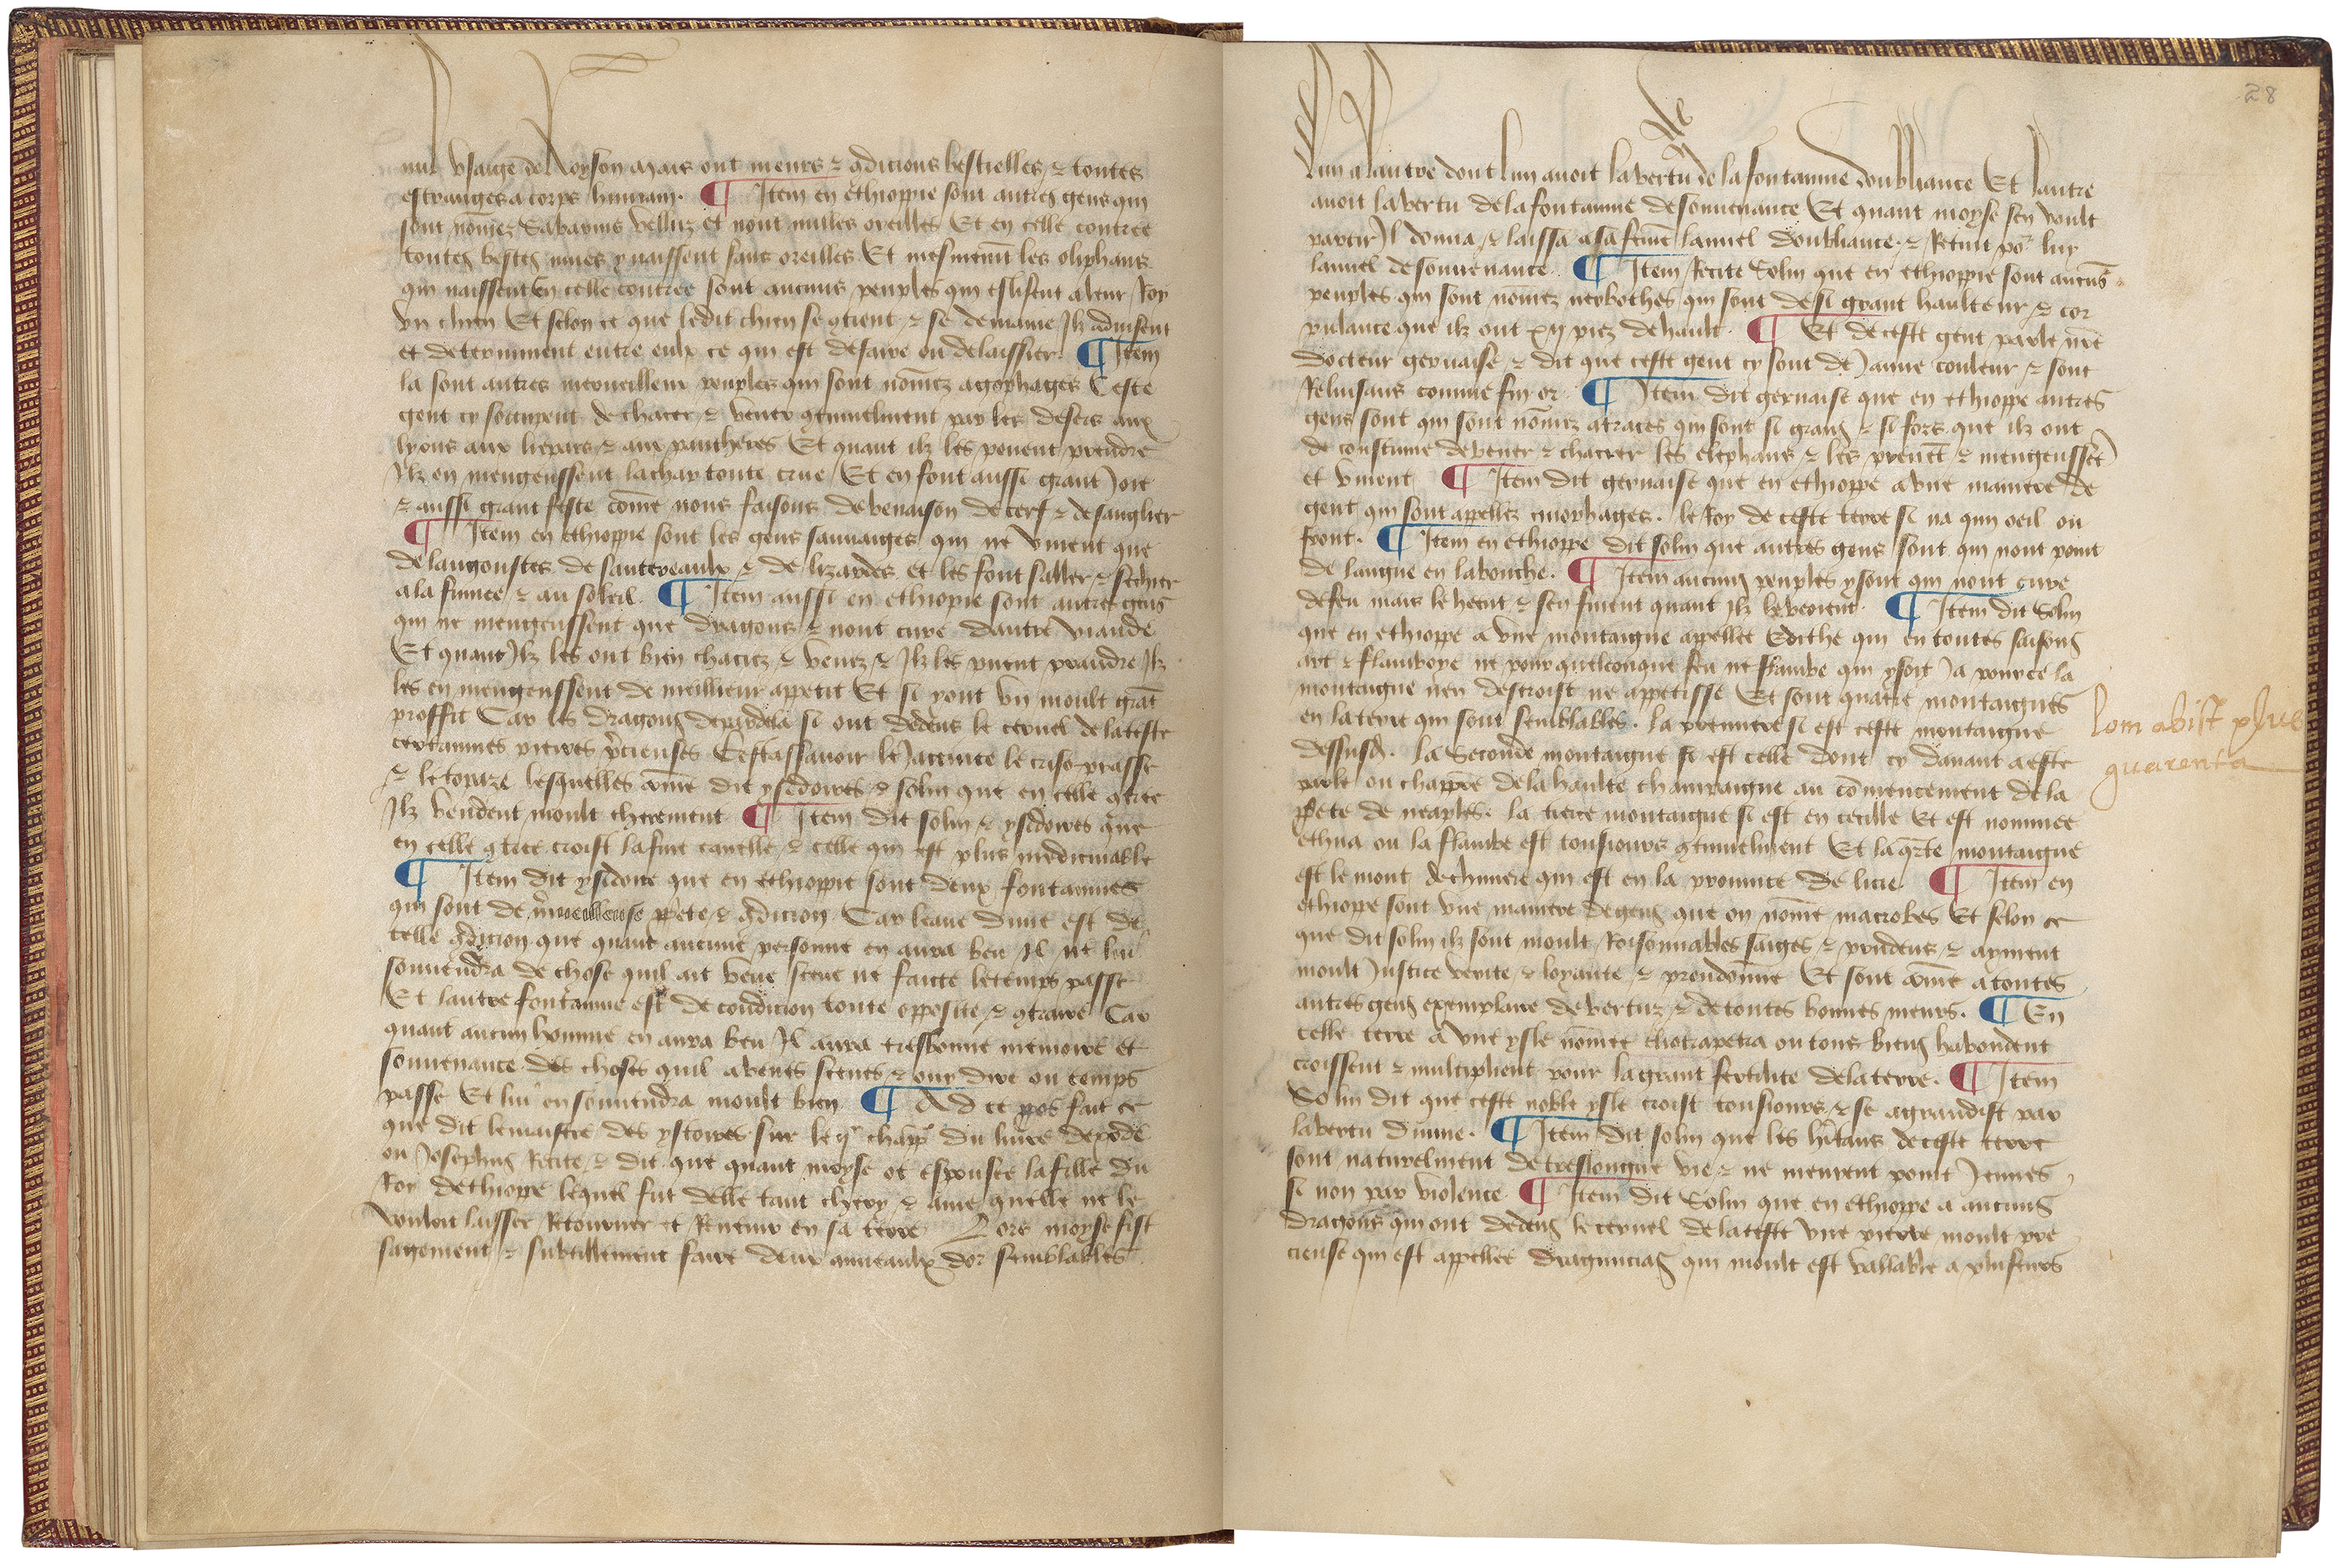 nul usaige de Royson mais ont meurs & 9dicions bestielles & toutes
estranges a corps humain. ¶ Item en ethioppie sont autres gens qui
sont nōmez Sabarins velluz et nont nulles oreilles Et en celle contree
toutes bestes mues y naissent sans oreilles Et mesmemt les oliphans
qui naissent en celle contree sont aucuns peuples qui eslisent a leur Roy
un chien Et selon ce que ledit chien se 9tient & se demaine Ilz aduisent
et determinent entre eulx ce qui est de faire ou de laissier. ¶ Item
la sont autres merueilleux peuples qui sont nōmez agophages Ceste
gent cy seurpent de chacer & vener 9tinuelment par les desers aux
lyons aux liepars & aux pantheres Et quant ilz les peuent prendre
Ilz en mengeussent la char toute crue Et en font aussi grant Joie
& aussi grant feste cōme nous faisons de venaison de cerf & de sanglier
¶ Item en ethioppie sont les gens sauuaiges qui ne viuent que
de langoustes de sautereaulx & de lizardes et les font saller & sechier
a la fumee & au soleil. ¶ Item aussi en ethiopie sont autres gens
qui ne mengeussent que dragons & nont cure dautre viande
Et quant Ilz les ont bien chaciez & venez & Ilz les puent prandre Ilz
les en mengeussent de meilleur appetit Et si y ont un moult grāt
proffit Car les dragons de par dela si ont dedēns le ceruel de la teste
certaines pierres p̄cieuses Cestassauoir le Jacincte le crisoprasse
& le topaze lesquelles cōme dit ysidores & solin que en celle 9tree
Ilz vendent moult cherement ¶ Item dit solin & ysidores que
en celle 9tree croist la fine canelle & celle qui est plus medicinable
¶ Item dit ysidore que en ethioppie sont deux fontaines
qui sont de m̄ueilleuse pp̄ete & 9dicion Car leaue dune est de
telle 9dicion que quant aucune personne en aura beu Il ne lui
souuendra de chose quil ait veue sceue ne faicte le temps passe
Et lautre fontaine est de condicion toute opposite & 9traire Car
quant aucun homme en aura beu Il aura tresbonne memoire et
souuenance des choses quil a veues sceues & ouy dire ou temps
passe Et lui en souuendra moult bien ¶ Ad ce ppos fait ce
que dit le maistre des ystoires sur le ij chapp̄ du liure dexode
ou Josephus Recite & dit que quant moyse ot espousee la fille du
Roy dethioppe lequel fut delle tant chery & ame quelle ne le
vouloit laisser Retourner et Reuenir en sa terre Lors moyse fist
sagement & subtillement faire deux anneaulx dor semblables
28
lun a lautre dont lun auoit la vertu de la fontaine doubliance Et lautre
auoit la vertu de la fontaine de souuenance Et quant moyse sen voult
partir Il donna & laissa a sa feme lannel doubliance & Retint por luy
lannel de souuenance. ¶ Item Recite Solin que en ethioppie sont aucūs
peuples qui sont nōmez nerbothes qui sont de si grant haulteur & cor
pulance que ilz ont xij piez de hault. ¶ Et de ceste gent parle nre
docteur geruaise & dit que ceste gent cy sont de Jaune couleur & sont
Reluisans comme fin or. ¶ Item dit geruaise que en ethioppe autres
gens sont qui sont nōmez atraces qui sont si grans & si fors que ilz ont
de coustume de vener & chacer les elephans & les prenēt & mengeussēt
et viuent ¶ Item dit geruaise que en ethioppe a une maniere de
gent qui sont appellez cinophages. le Roy de ceste terre si na qun oeil ou
front. ¶ Item en ethioppe dit solin que autres gens sont qui nont point
de langue en la bouche. ¶ Item aucuns peuples y sont qui nont cure
de feu mais le heent & sen fuient quant ilz le veoient. ¶ Item dit Solin
que en ethioppe a une montaigne appellee Edithe qui en toutes saisons
art & flamboye ne pour quelconque feu ne flambe qui y soit Ja pource la
montaigne nen descroist ne appetisse Et sont quatre montaignes
en la terre qui sont semblables. la premiere si est ceste montaigne
dessusd. la Seconde montaigne si est celle dont cy dauant a este
parle ou chapp̄re de la haulte champaigne au cōmencement de la
pp̄ete de neaples. la tierce montaigne si est en cecille Et est nommee
ethna ou la flambe est tousiours 9tinuelment Et la qrte montaigne
est le mont de chimere qui est en la prouince de licie. ¶ Item en
ethioppe sont une maniere de gens que on nōme macrobes Et selon ce
que dit solin ilz sont moult Roisonnables saiges & prudens & ayment
moult Justice verite & loyaute & preudomie Et sont cōme a toutes
autres gens exemplaire de vertuz & de toutes bonnes meurs. ¶ En
celle terre a une ysle nōmee eliotrapetra ou tous biens habondent
croissent & multiplient pour la grant fertilite de la terre. ¶ Item
Solin dit que ceste noble ysle croist tousiours & se agrandist par
la vertu diuine. ¶ Item dit solin que les h̄itans de ceste terre
sont naturelment de treslongue vie & ne meurent point Jeunes
si non par violence ¶ Item dit Solin que en ethioppe a aucuns
dragons qui ont dedens le ceruel de la teste une pierre moult pre
cieuse qui est appellee draguncias qui moult est vallable a plusieurs
lom abist plus
quarenta